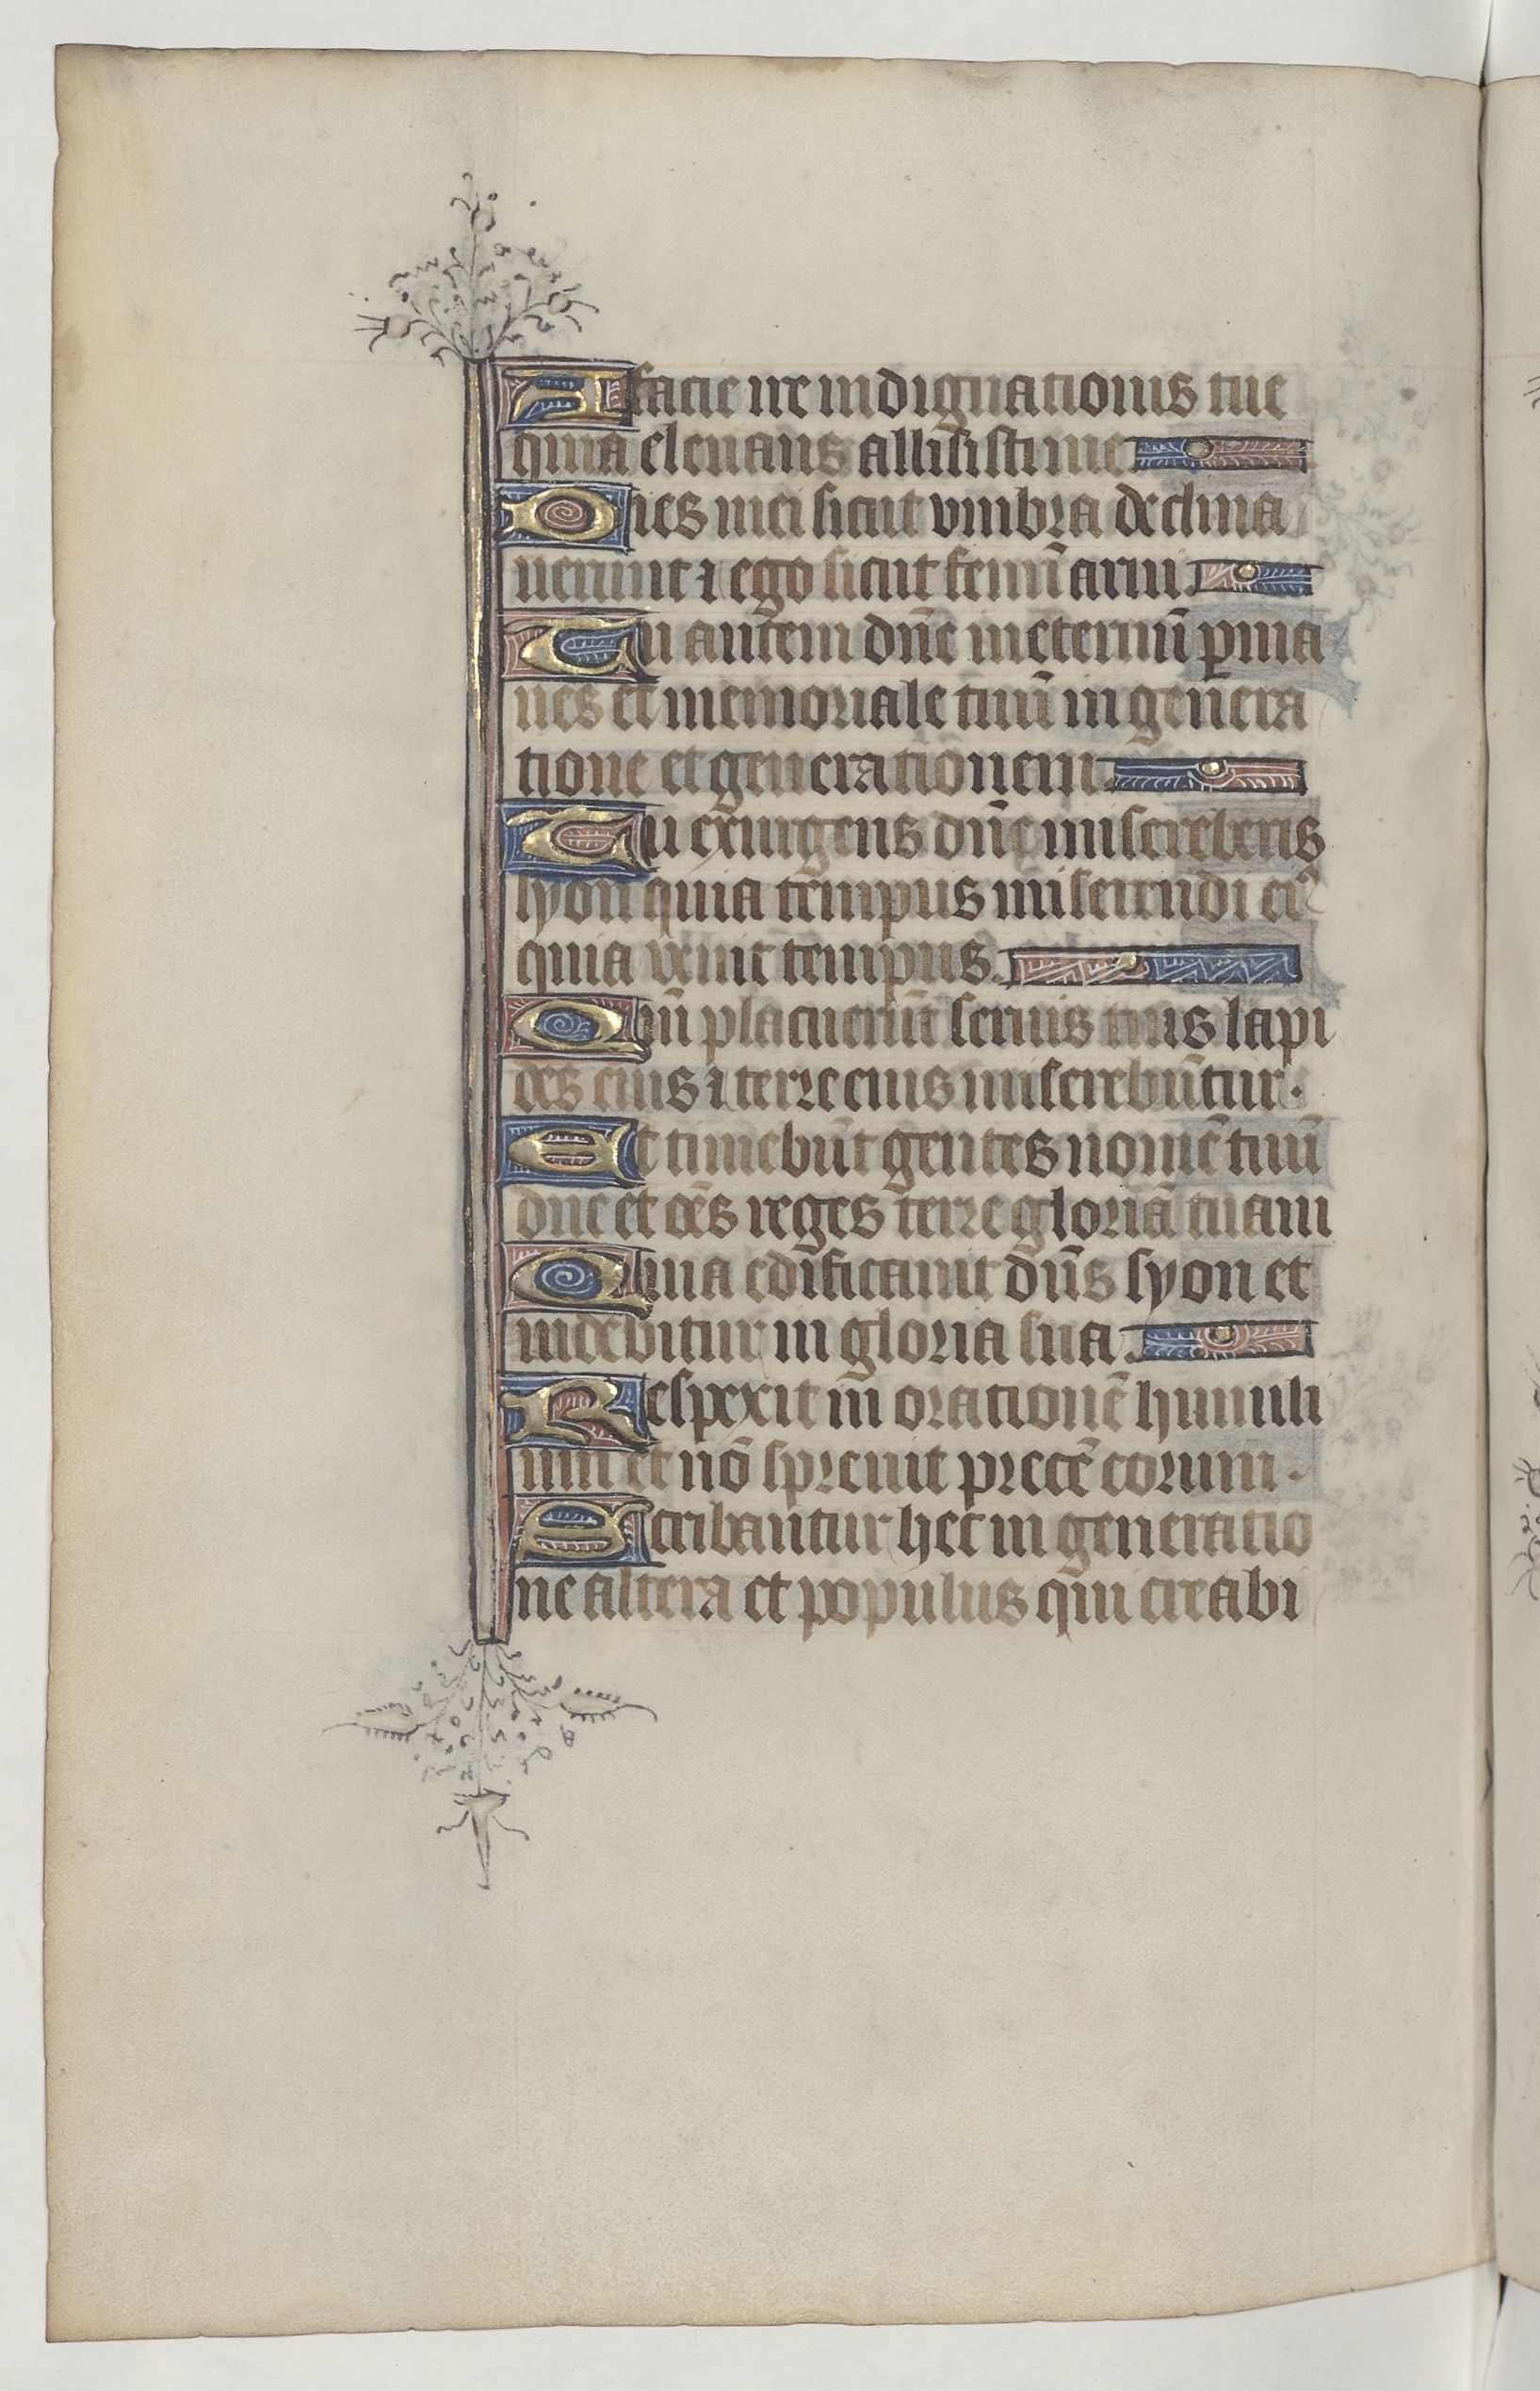 A facie ire indignationis tue
quia eleuans allisisti me.
Dies mei sicut vmbra declina
uerunt ⁊ ego sicut fenũ arui.
Tu autem dñe in eternũ ꝑma
nes et memoriale tuũ in genera
tione et generationem.
Tu exurgens dñe misereberis
syon quia tempus miserendi eiꝰ
quia uenit tempus.
Qm̃ placuerũt seruis tuis lapi
des eius ⁊ terre eius miserebũtur.
Et timebũt gentes nomẽ tuũ
dñe et oẽs reges terre gloriã tuam
Quia edificauit dñs syon et
uidebitur in gloria sua.
Respexit in orationẽ humili
um et nõ spreuit precẽ eorum.
Scribantur hec in generatio
ne altera et populus qui creabi